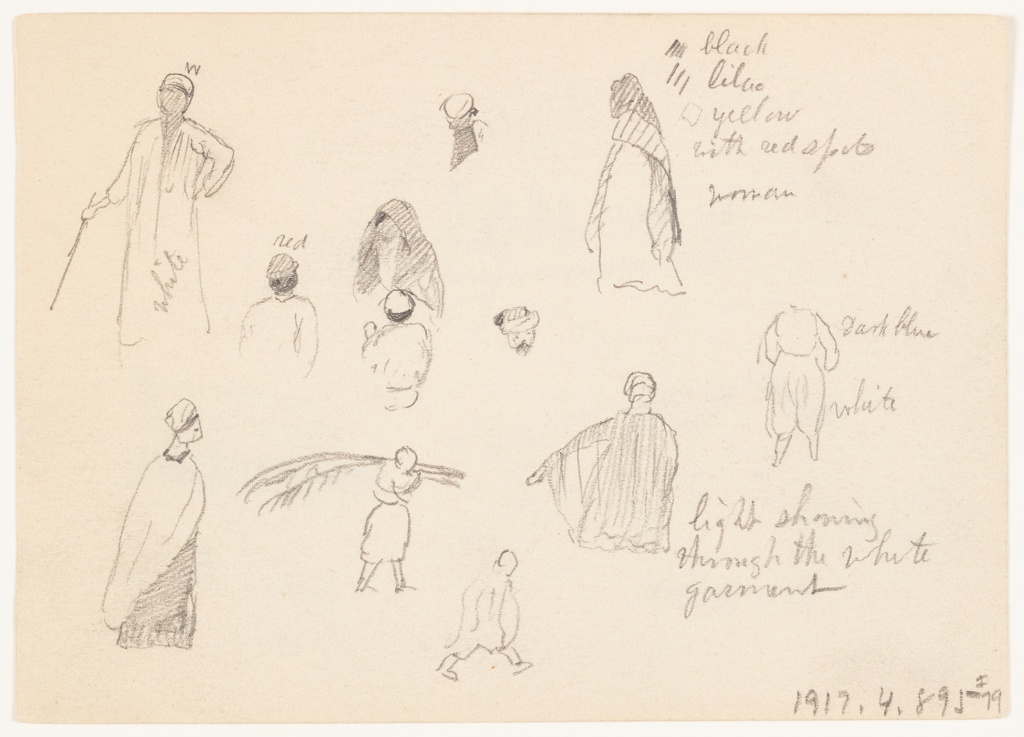 W
black
lilac
yellow
with red spots
woman
red
white
Dark blue
white
light showing
through the white
garment
1917.4.895